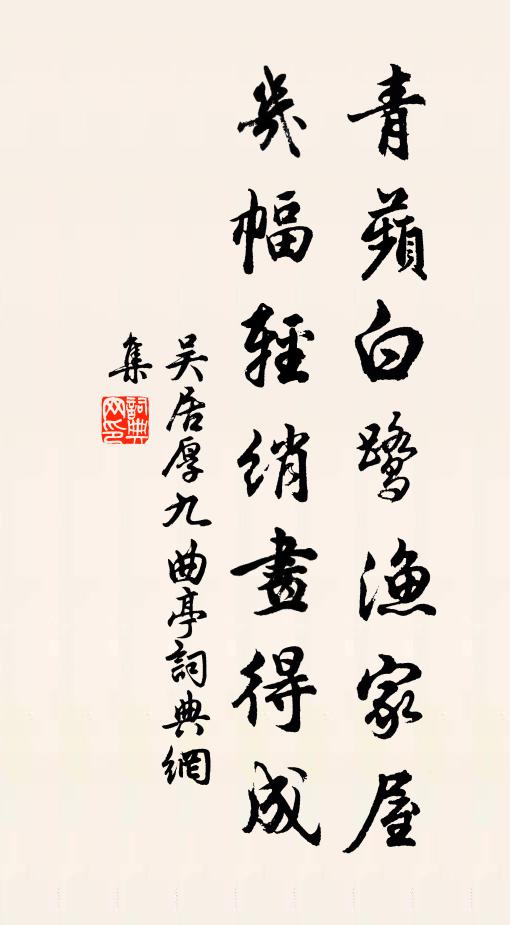 青蘋白鷺漁家屋
幾幅輕綃畫得成
吴居厚九曲亭詞典網
集
詞典网印